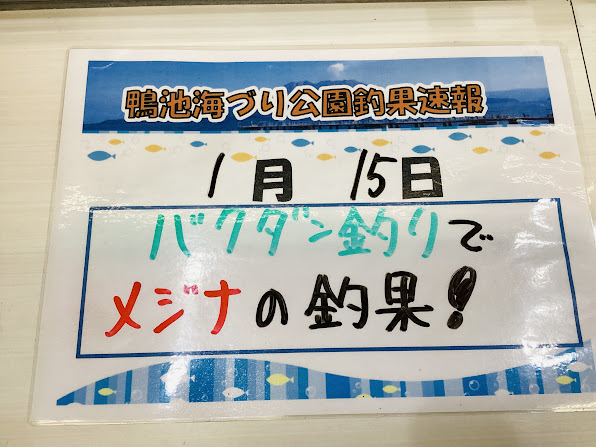 鴨池海づり公園釣果速報
1月 15日
バクダン釣りで
メジナの釣果!